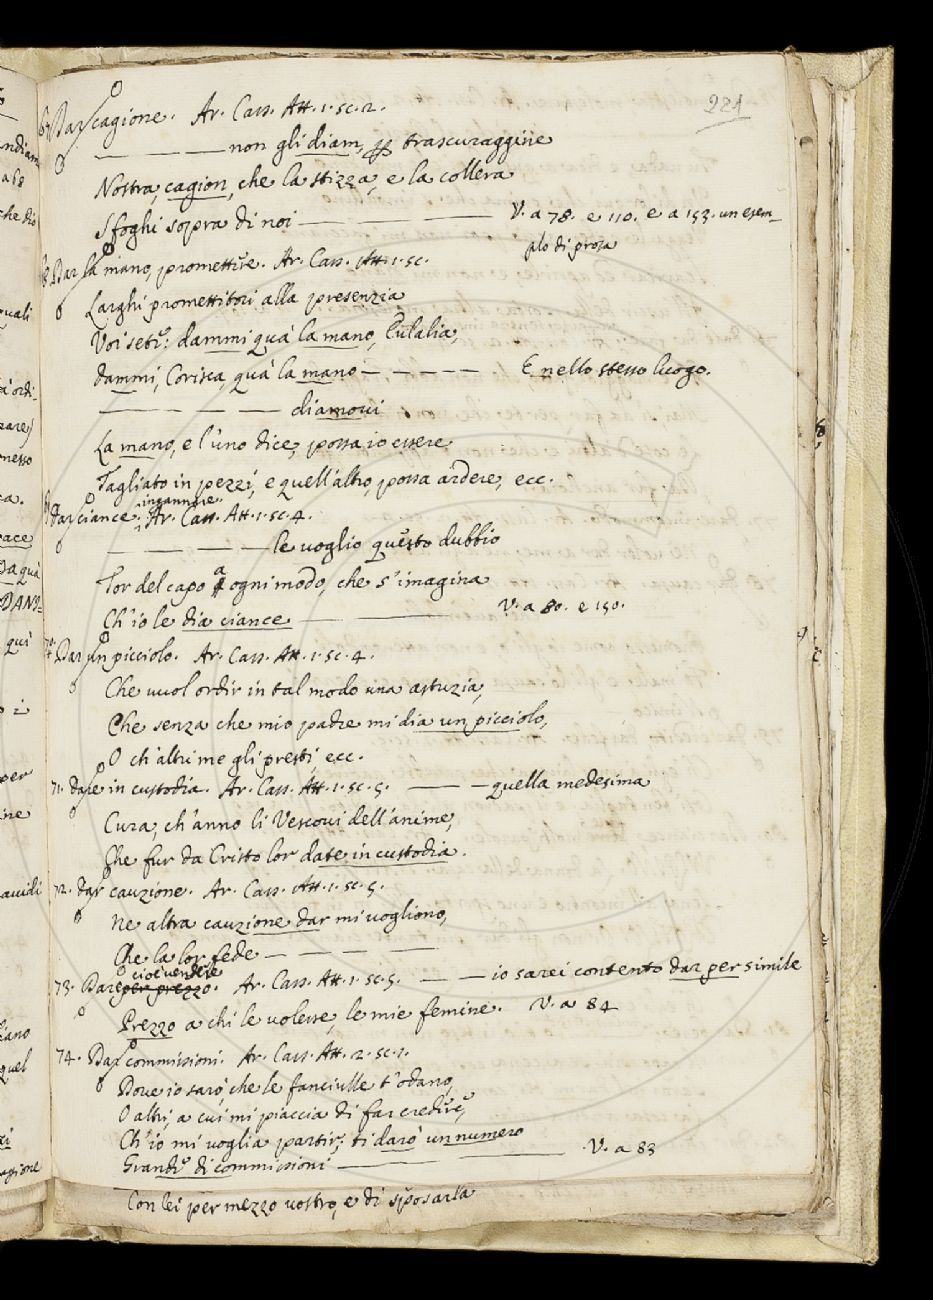 221
67. Dar cagione. Ar. Cass. Att. 1. sc. 2.
non gli diam, per trascuraggine
Nostra, cagion, che la stizza, e la collera
Sfoghi sopra di noi — V. a 78. e 110. e a 153. un esem-
plo di prosa
68. Dar la mano, promettere. Ar. Cass. Att. 1. sc.
Larghi promettitori alla presenzia
Voi sete: dammi quà la mano, Eulalia,
dammi, Corisca, quà la mano — E nello stesso luogo.
diamoci
La mano, e l'uno dice, possa io essere
Tagliato in pezzi, e quell'altro, possa ardere, ecc.
ingannare.
69. dar ciance. Ar. Cass. Att. 1. sc. 4.
le voglio questo dubbio
Tor del capo a ogni modo, che s'imagina
Ch'io le dia ciance — V. a 80. e 150.
70. Dar un picciolo. Ar. Cass. Att. 1. sc. 4.
Che vuol ordir in tal modo una astuzia,
Che senza che mio padre mi dia un picciolo,
O ch'altri me gli presti, ecc.
71. dare in custodia. Ar. Cass. Att. 1. sc. 5. — quella medesima
Cura, ch'anno li Vescovi dell'anime,
Che fur da Cristo lor date in custodia.
72. dar cauzione. Ar. Cass. Att. 1. sc. 5.
Ne altra cauzione dar mi vogliono,
Che la lor fede —
cioè vendere
73. Dare per prezzo. Ar. Cass. Att. 1. sc. 5. — io sarei contento dar per simile
Prezzo a chi le volesse, le mie femine. V. a 84
74. Dar commissioni. Ar. Cass. Att. 2. sc. 1.
Dove io sarò, che le fanciulle t'odano,
O altri, a cui mi piaccia di far credere,
Ch'io mi voglia partir; ti darò un numero
Grande di commissioni — V. a 83
Con lei per mezzo vostro, e di sposarla